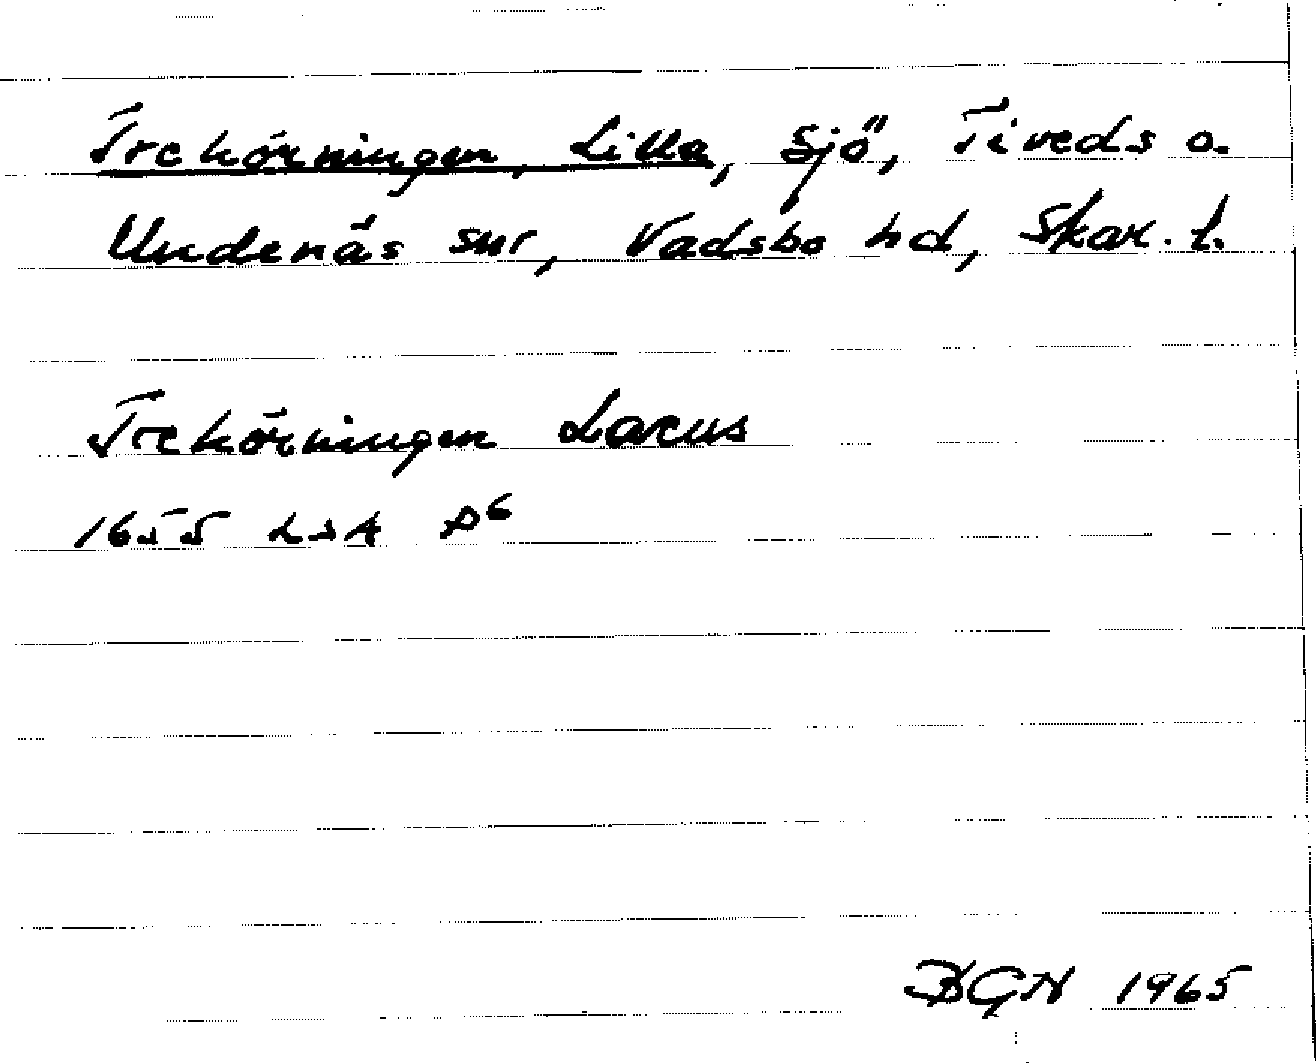 Trehörningen, Lilla, sjö, Tiveds o.
Undenäs snr, Vadsbo hd, Skar. l.
Trehörningen Lacus
1655 LSA P6
BGN 1965